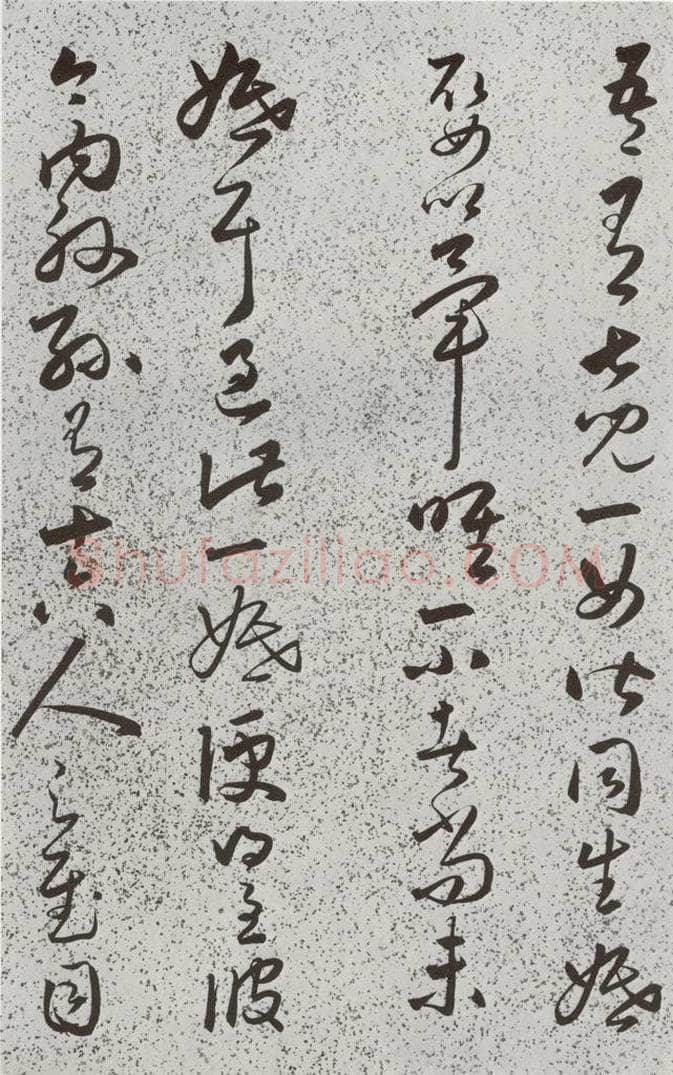 吾有七兒一女皆同生婚
娶以畢唯一小者尚未
婚耳過此一婚便得至彼
今内外孫有十六人足慰目
Shufaziliao.COM